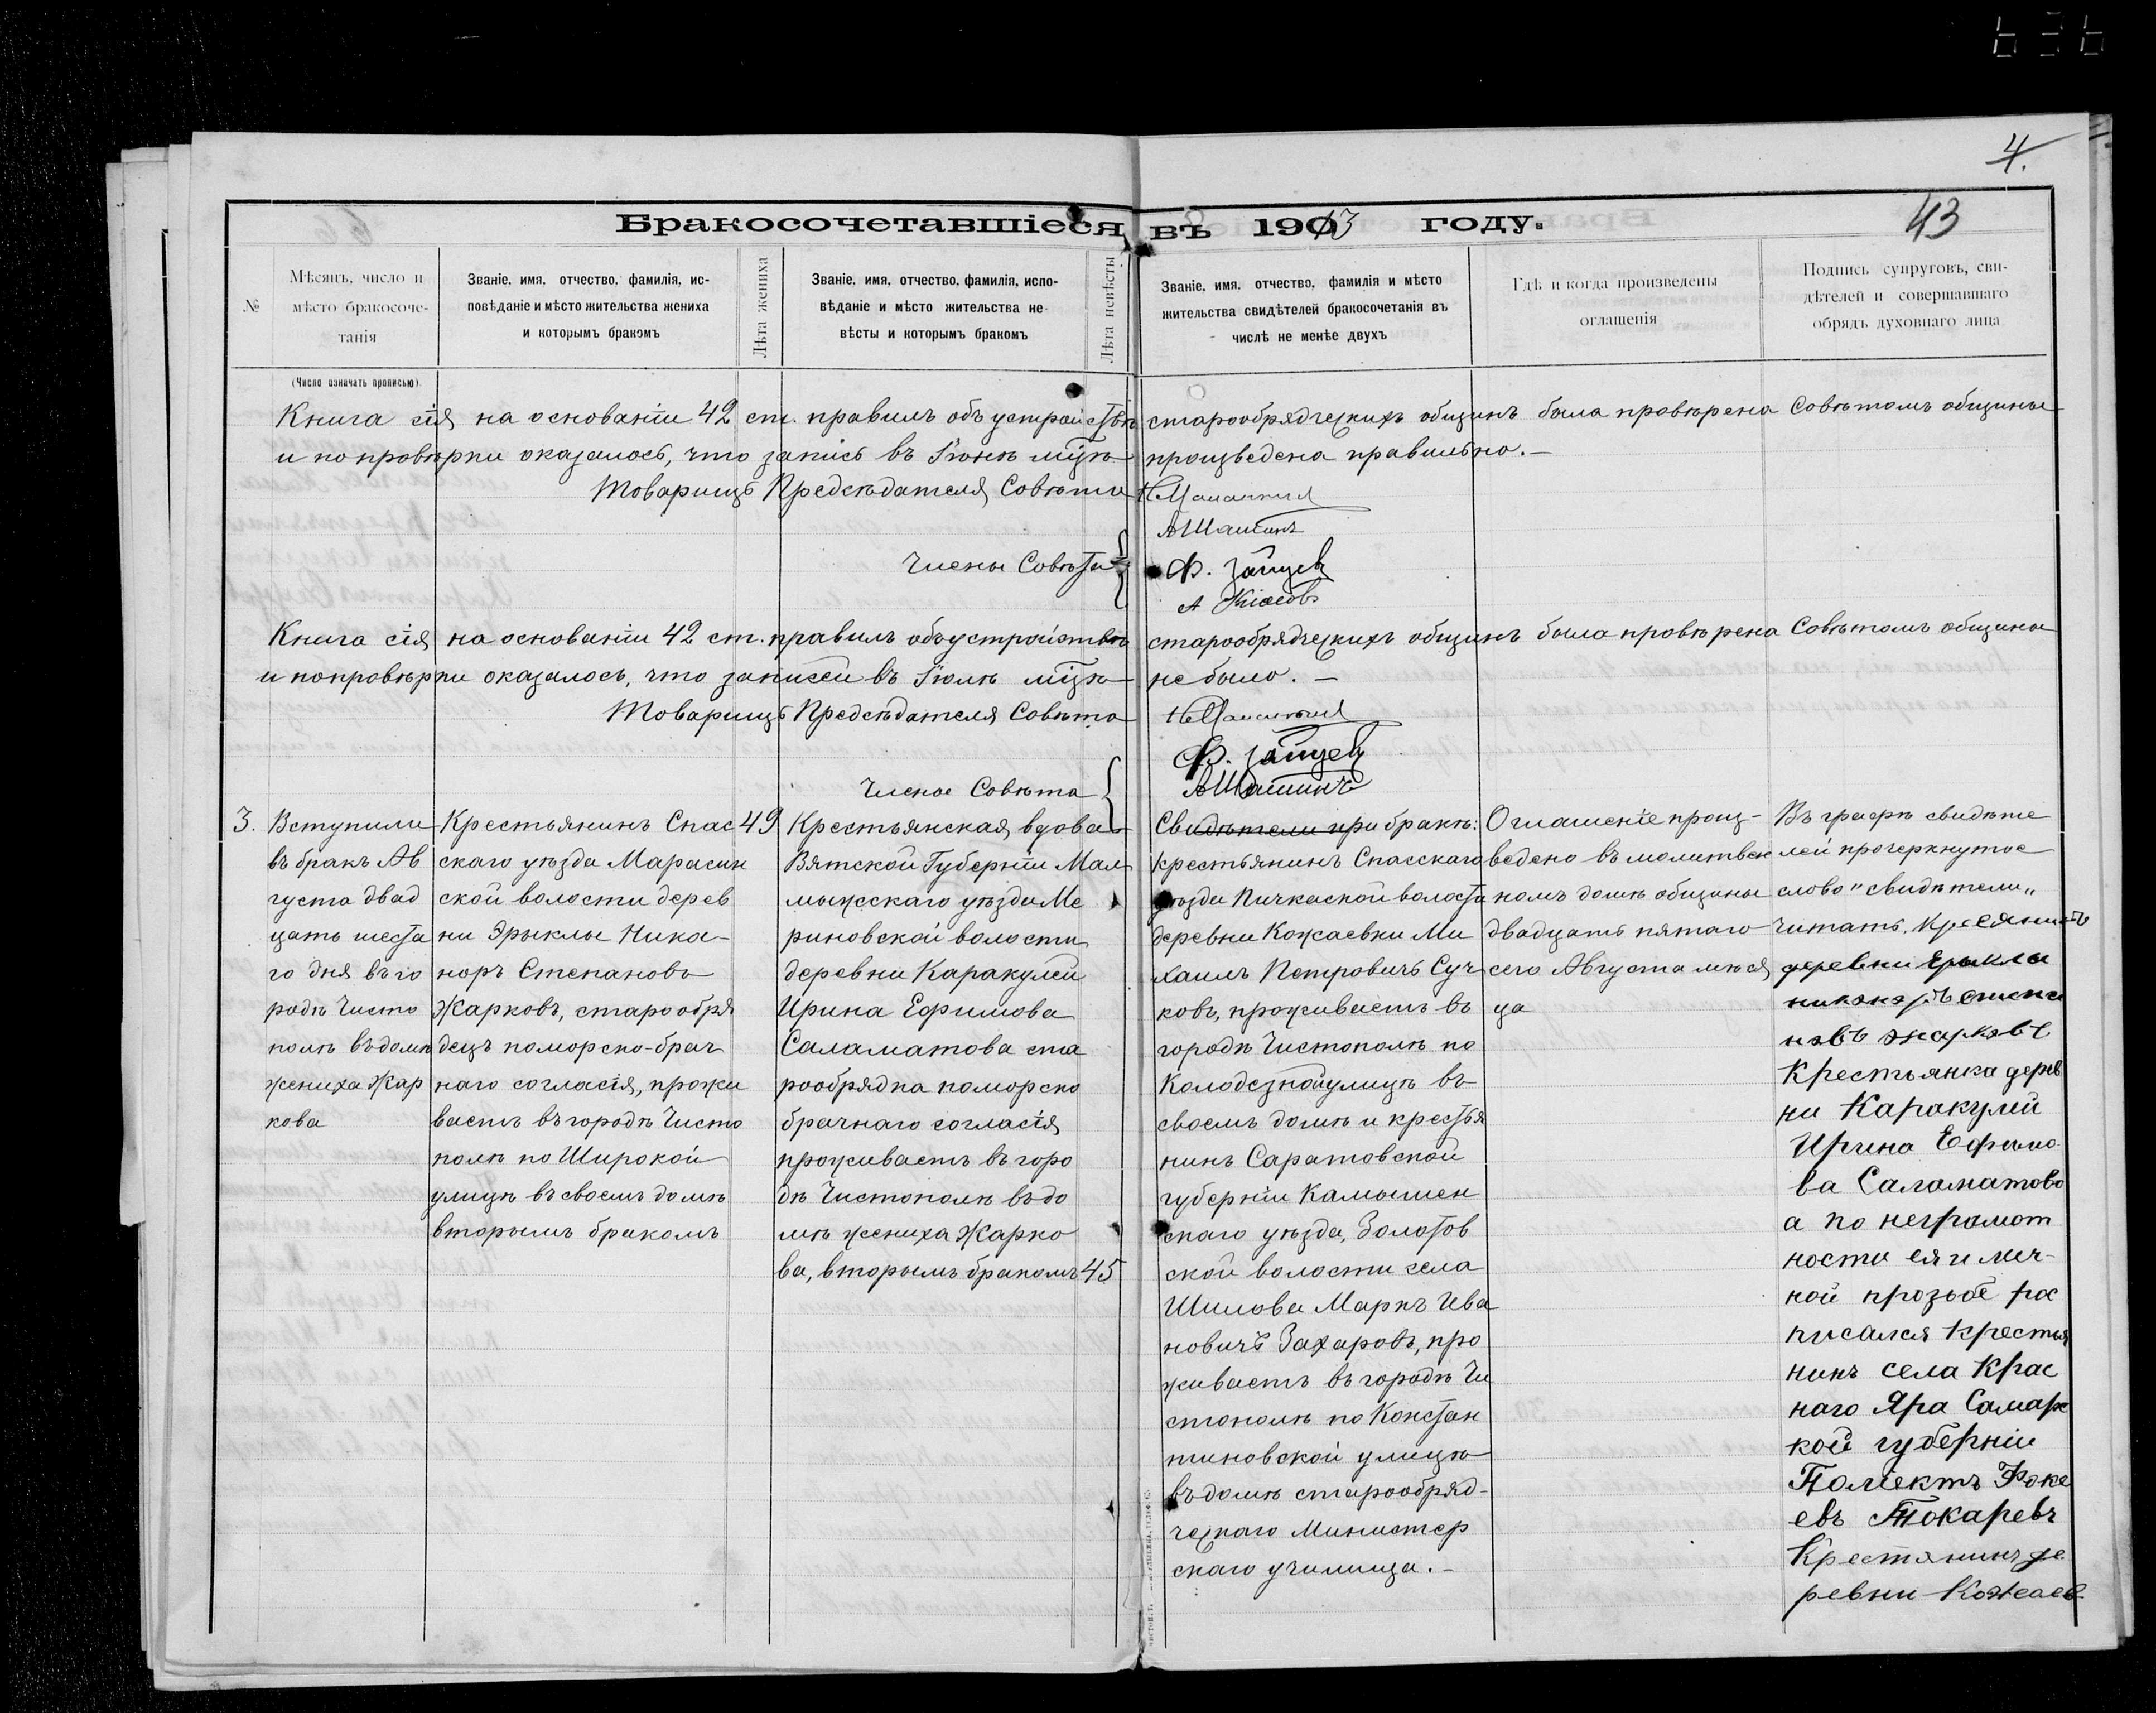 4.
Бракосочетавшіеся въ 1913 году.
43
№
Мѣсяцъ, число и
мѣсто бракосоче-
танія
(Число означать прописью).
Званіе, имя, отчество, фамилія, ис-
повѣданіе и мѣсто жительства жениха
и которымъ бракомъ
Лѣта жениха
Званіе, имя, отчество, фамилія, испо-
вѣданіе и мѣсто жительства не-
вѣсты и которымъ бракомъ
Лѣта невѣсты
Званіе, имя, отчество, фамилія и мѣсто
жительства свидѣтелей бракосочетанія въ
числѣ не менѣе двухъ
Гдѣ и когда произведены
оглашенія
Подпись супруговъ, сви-
дѣтелей и совершавшаго
обрядъ духовнаго лица
Книга сія на основаніи 42 ст. правилъ объ устройствѣ старообрядческихъ общинъ была провѣрена Совѣтомъ общины
и по провѣрки оказалось, что запись въ Іюнѣ мцѣ произведена правильно.—
Товарищъ Предсѣдателя Совѣта
АШашинъ
Члены Совѣта
Ф. Зайцев
А
Книга сія на основаніи 42 ст. правилъ объ устройствѣ старообрядческихъ общинъ была провѣрена Совѣтомъ общины
и по провѣрки оказалось, что записей въ Іюлѣ мцѣ не было.—
Товарищъ Предсѣдателя Совѣта
Ф. Зайцев
Члены Совѣта
АШашинъ
3.
Вступили
въ бракъ Ав
густа двад
цать шеста
го дня въ го
родѣ Чисто
полѣ въ домѣ
жениха Жар
кова
Крестьянинъ Спас
скаго уѣзда Марасин
ской волости дерев
ни Эрыклы Ника-
норъ Степановъ
Жарковъ, старообря
децъ поморско-брач
наго согласія, прожи
ваетъ въ городѣ Чисто
полѣ по Широкой
улицѣ въ своемъ домѣ
вторымъ бракомъ
49
Крестьянская вдова
Вятской Губерніи Мал
мыжскаго уѣзда Ме
риновской волости
деревни Каракулей
Ирина Ефимова
Саламатова ста
рообрядка поморско
брачнаго согласія
проживаетъ въ горо
дѣ Чистополѣ въ до
мѣ жениха Жарко
ва, вторымъ бракомъ
45
Свидѣтели при бракѣ:
крестьянинъ Спасскаго
уѣзда Пичкаской волости
деревни Кожаевки Ми
хаилъ Петровичъ Суч
ковъ, проживаетъ въ
городѣ Чистополѣ по
Колодезной улицѣ въ
своемъ домѣ и крестья
нинъ Саратовской
губерніи Камышен
скаго уѣзда, Золотов
ской волости села
Шилова Маркъ Ива
новичъ Захаровъ, про
живаетъ въ городѣ Чи
стополѣ по Констан
тиновской улицѣ
въ домѣ старообряд-
ческаго Министер
скаго училища.—
Оглашеніе произ-
ведено въ молитвен
номъ домѣ общины
двадцать пятаго
сего Августа мѣся
ца
Въ графѣ свидѣте
лей прочеркнутое
слово "свидѣтели"
читать. Кресянинъ
деревни Ерыклы
никаноръ степа
новъ жарковъ
Крестьянка дерев
ни Каракулей
Ирина Ефимо
ва Саламатово
а по неграмот
ности ея и лич-
ной прозьбе рас
писался крестья
нинъ села Крас
наго Яра Самарс
кой губерніи
Полиектъ Фоке
евъ Токаревъ
Крестянинъ де
ревни Кожаев